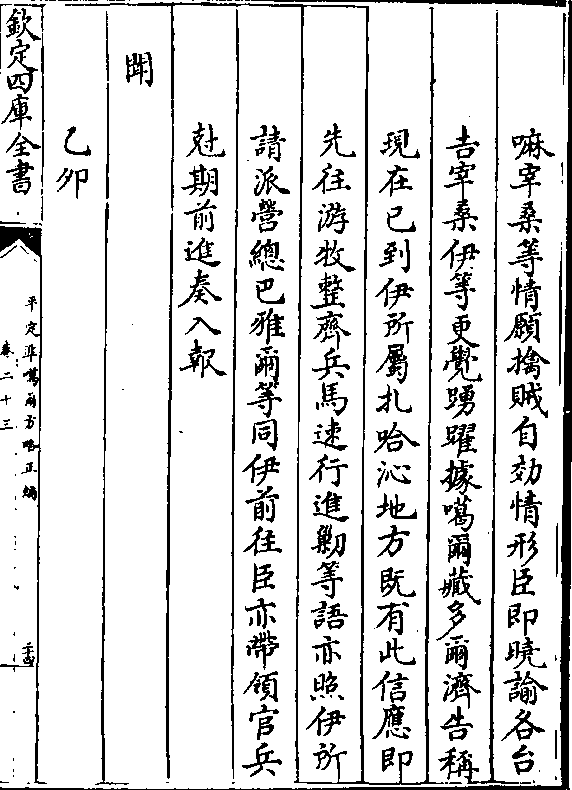 嘛宰桑等情願擒賊自効情形臣即曉諭各台
吉宰桑伊等更覺踴躍據噶爾藏多爾濟告稱
現在已到伊所屬扎哈沁地方既有此信應即
先往游牧整齊兵馬速行進勦等語亦照伊所
請派營總巴雅爾等同伊前往臣亦帶領官兵
尅期前進奏入報
聞
乙卯
欽定四庫全書
平定準噶爾方略正編
卷二十三